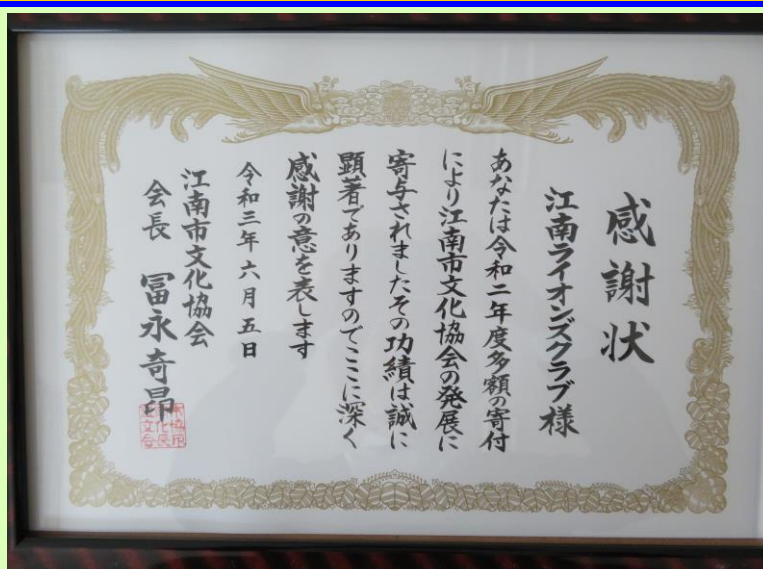 感謝状
江南ライオンズクラブ様
あなたは令和二年度多額の寄付
により江南市文化協会の発展に
寄与されましたその功績は誠に
顕著でありますのでここに深く
感謝の意を表します
令和三年六月五日
江南市文化協会
会長 冨永奇昂